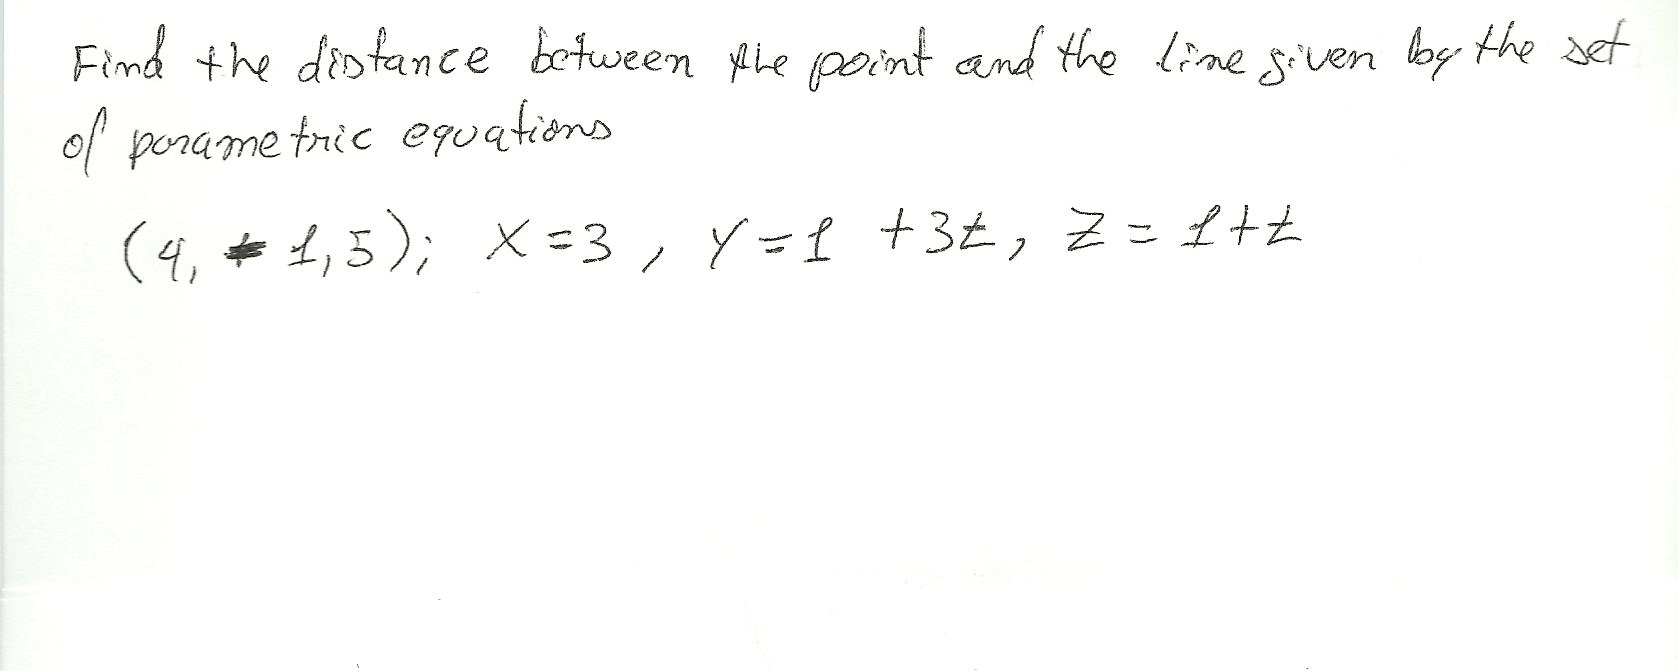 Find the distance between the point and the line given by the set
of parametric equations
(4, 1, 5); X = 3, Y = 1 + 3t, Z = 1 + t